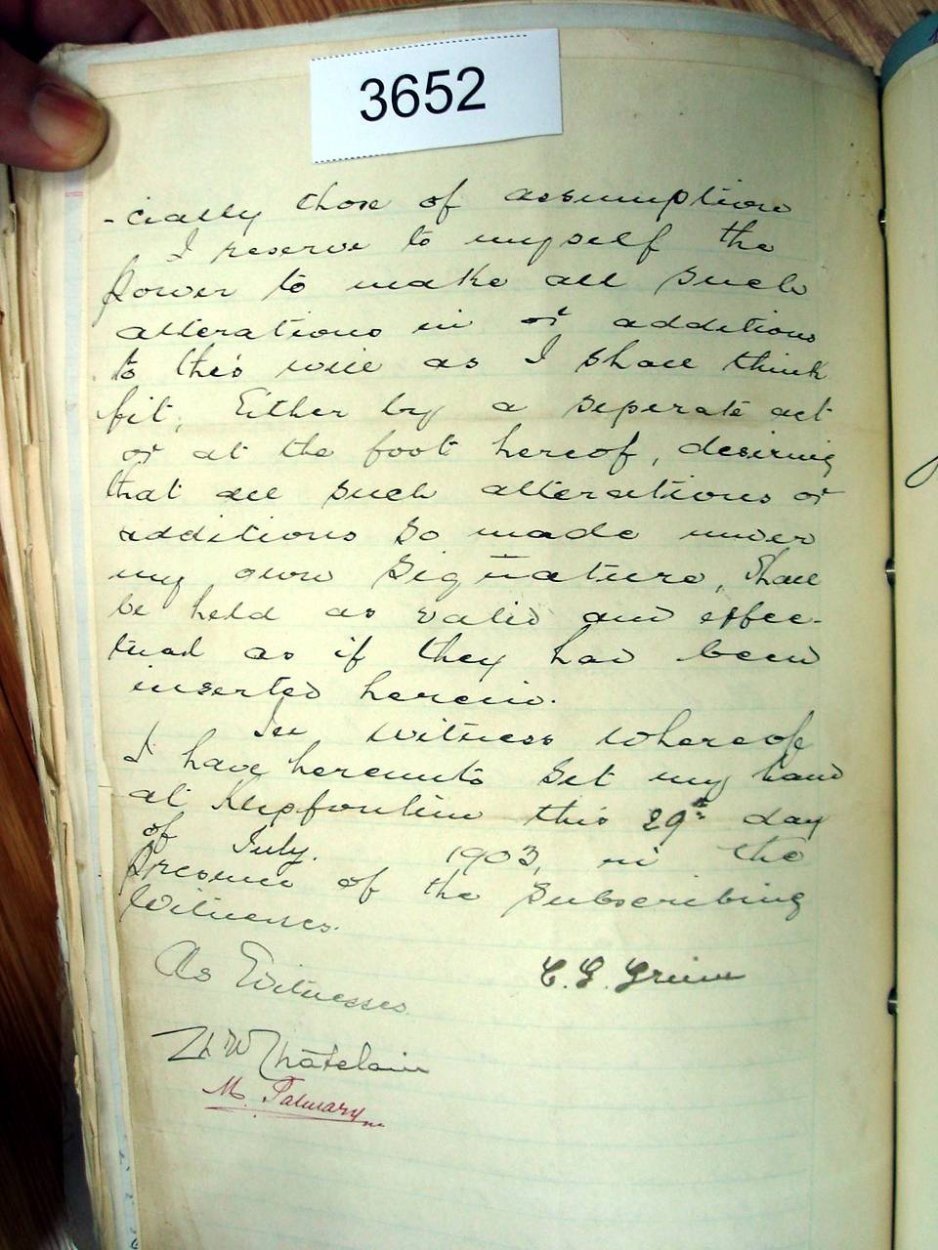 3652
-cially those of assumption
I reserve to myself the
power to make all such
alterations in or additions
to this will as I shall think
fit, Either by a seperate act
or at the foot hereof, desiring
that all such alterations or
additions so made under
my own Signature, Shall
be held as valid and effec-
tual as if they had been
inserted herein.
In witness whereof
I have hereunto Set my hand
at Klipfontein this 29th day
of July. 1903, in the
Presence of the Subscribing
Witnesses.
As Witnesses
C. G. Grimm
W Chatelain
M. Palmary